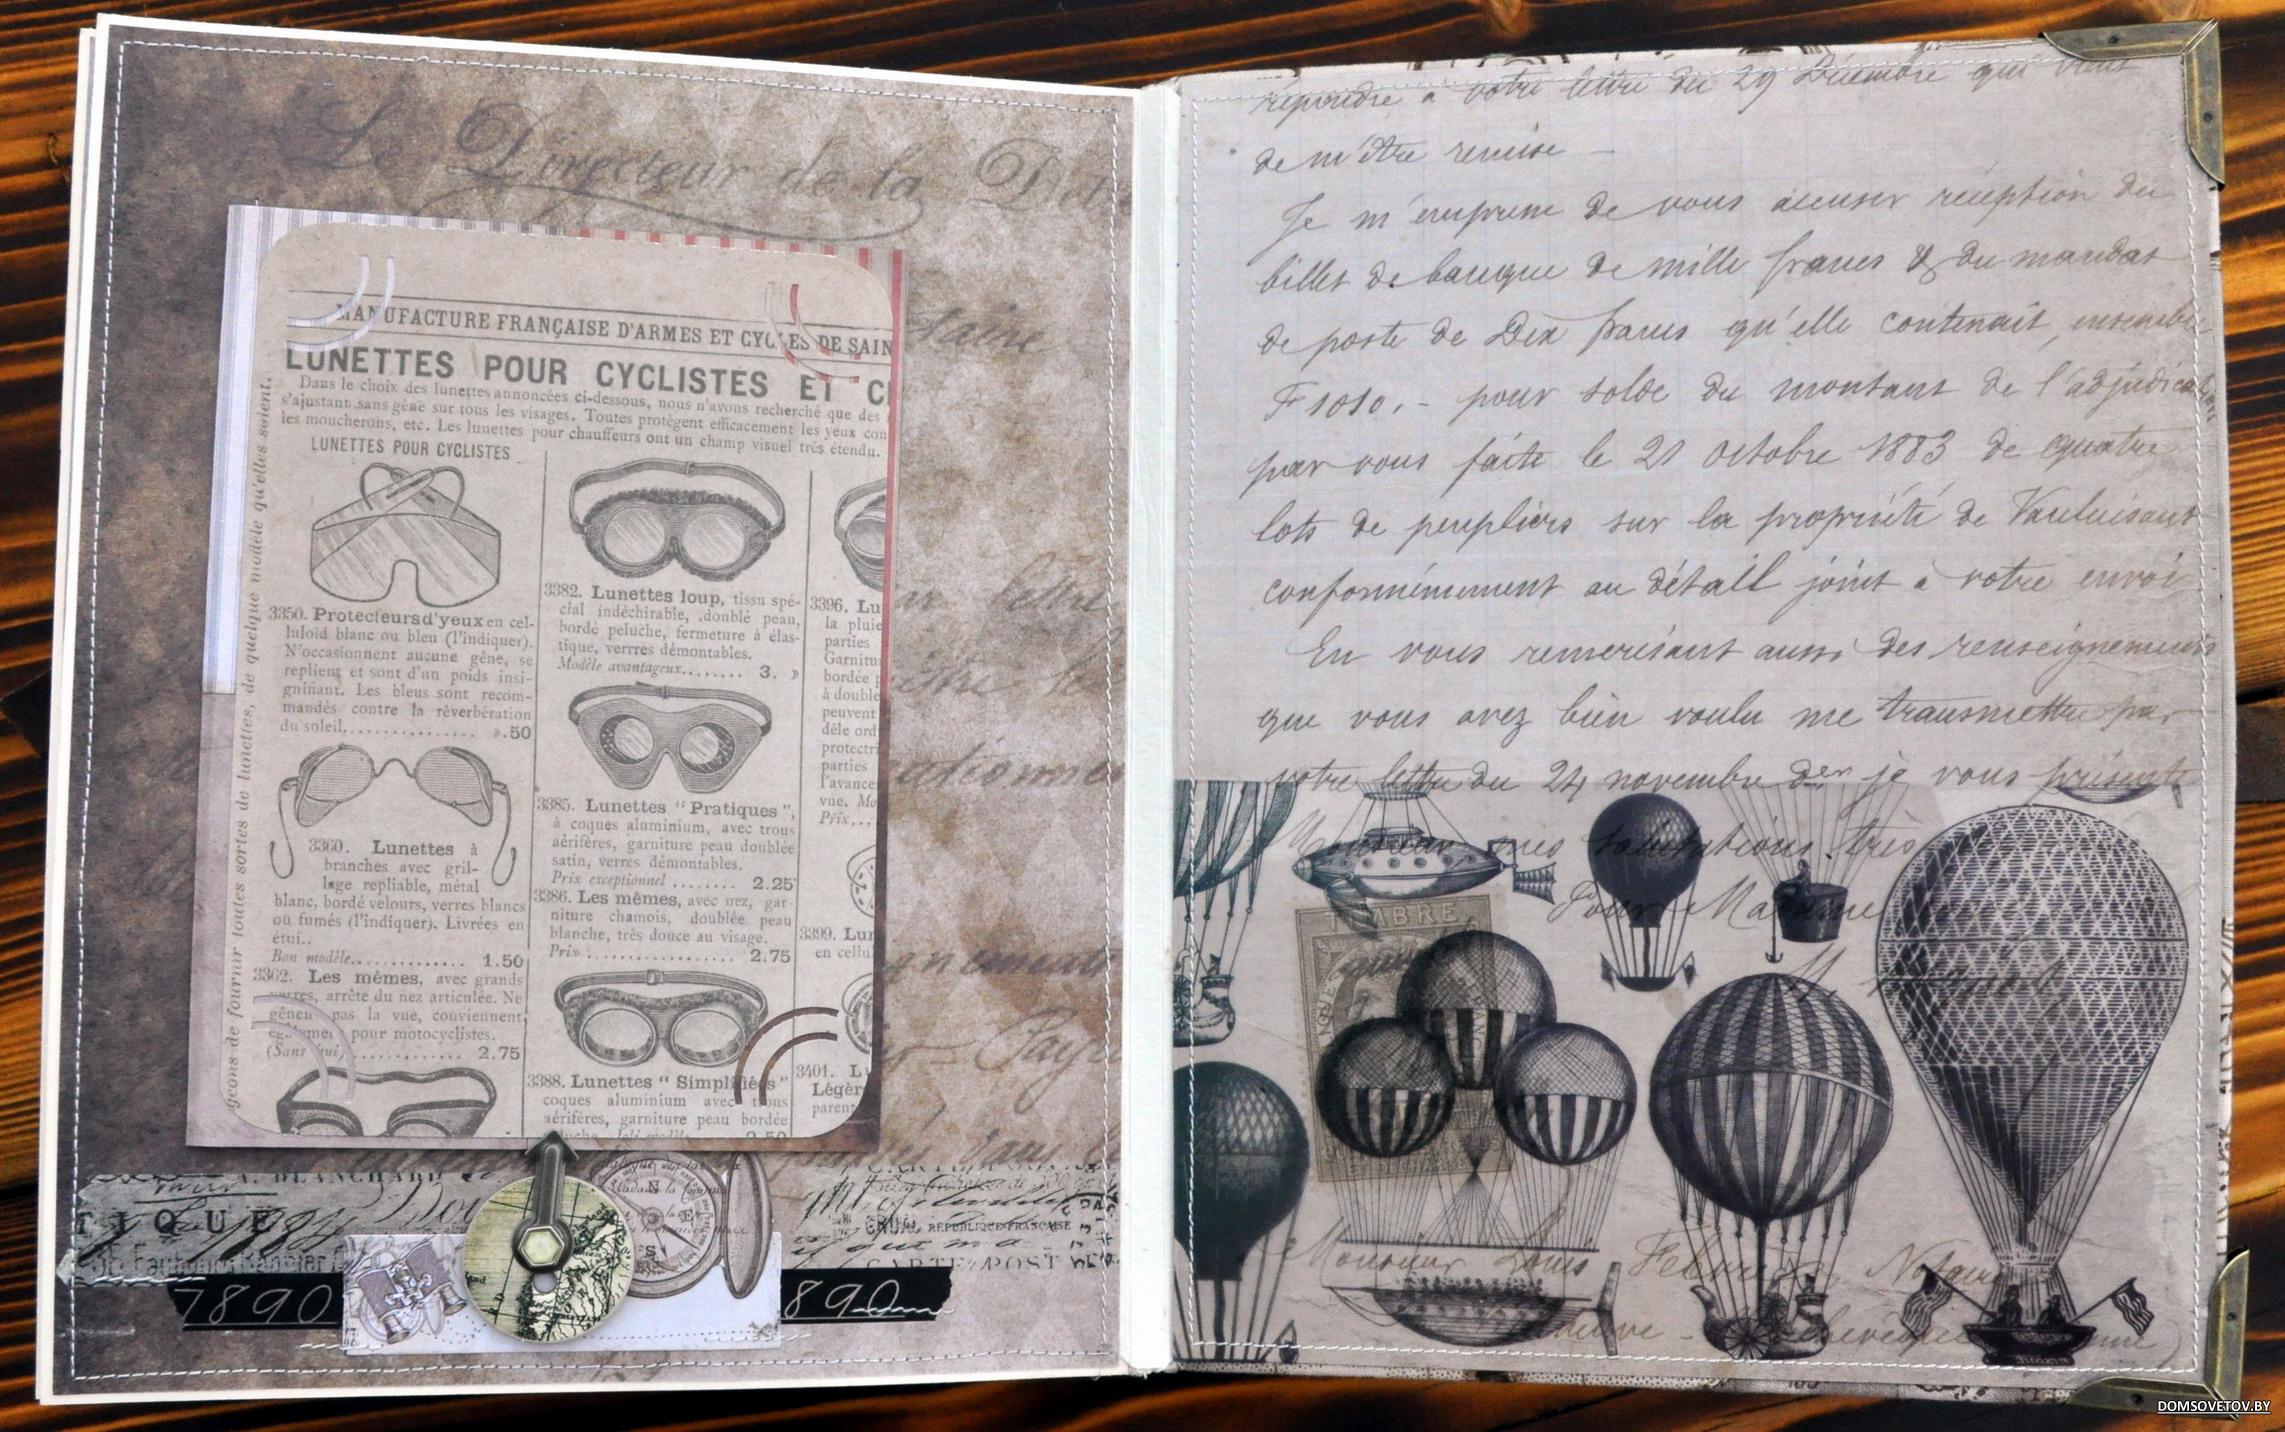 Le Directeur de la
MANUFACTURE FRANÇAISE D'ARMES ET CYCLES DE SAIN
LUNETTES POUR CYCLISTES ET C
Dans le choix des lunettes annoncées ci-dessous, nous n'avons recherché que des
s'ajustant sans gêne sur tous les visages. Toutes protègent efficacement les yeux con
les moucherons, etc. Les lunettes pour chauffeurs ont un champ visuel très étendu.
LUNETTES POUR CYCLISTES
3350. Protecteurs d'yeux en cel-
luloïd blanc ou bleu (l'indiquer).
N'occasionnent aucune gêne, se
replient et sont d'un poids insi-
gnifiant. Les bleus sont recom-
mandés contre la réverbération
du soleil................ ».50
3360. Lunettes à
branches avec gril-
lage repliable, métal
blanc, bordé velours, verres blancs
ou fumés (l'indiquer). Livrées en
étui..
Bon modèle.............. 1.50
3362. Les mêmes, avec grands
verres, arrête du nez articulée. Ne
gênent pas la vue, conviennent
également pour motocyclistes.
(Sans étui).............. 2.75
3382. Lunettes loup, tissu spé-
cial indéchirable, doublé peau,
bordé peluche, fermeture à élas-
tique, verrres démontables.
Modèle avantageux........ 3. »
3385. Lunettes "Pratiques",
à coques aluminium, avec trous
aérifères, garniture peau doublée
satin, verres démontables.
Prix exceptionnel ........ 2.25
3386. Les mêmes, avec nez, gar-
niture chamois, doublée peau
blanche, très douce au visage.
Prix .................. 2.75
3388. Lunettes "Simplifiées"
coques aluminium avec trous
aérifères, garniture peau bordée
3396. Lu
la pluie
parties
Garnitu
bordée p
à double
peuvent
dèle ord
protectri
parties
l'avance
vue. Mo
Prix...
3399. Lun
en cellu
3401. L
Légèr
parent
geons de fournir toutes sortes de lunettes, de quelque modèle qu'elles soient.
lettre
A. BLANCHARD
TIQUE
RÉPUBLIQUE FRANÇAISE
CARTE POST
N
E
S
7890
890
répondre à votre lettre du 29 Décembre qui vient
de m'être remise -
Je m'empresse de vous accuser réception du
billet de banque de mille francs & du mandat
de poste de Dix francs qu'elle contenait, ensemble
F 1010.- pour solde du montant de l'adjudicat
par vous faite le 21 octobre 1883 de quatre
lots de peupliers sur la propriété de Vauluisant
conformément au détail joint à votre envoi
En vous remerciant aussi des renseignements
que vous avez bien voulu me transmettre par
votre lettre du 24 novembre der je vous présente
Monsieur mes salutations très
Pour Madame
TIMBRE
Monsieur Louis Notaire
DOMSOVETOV.BY